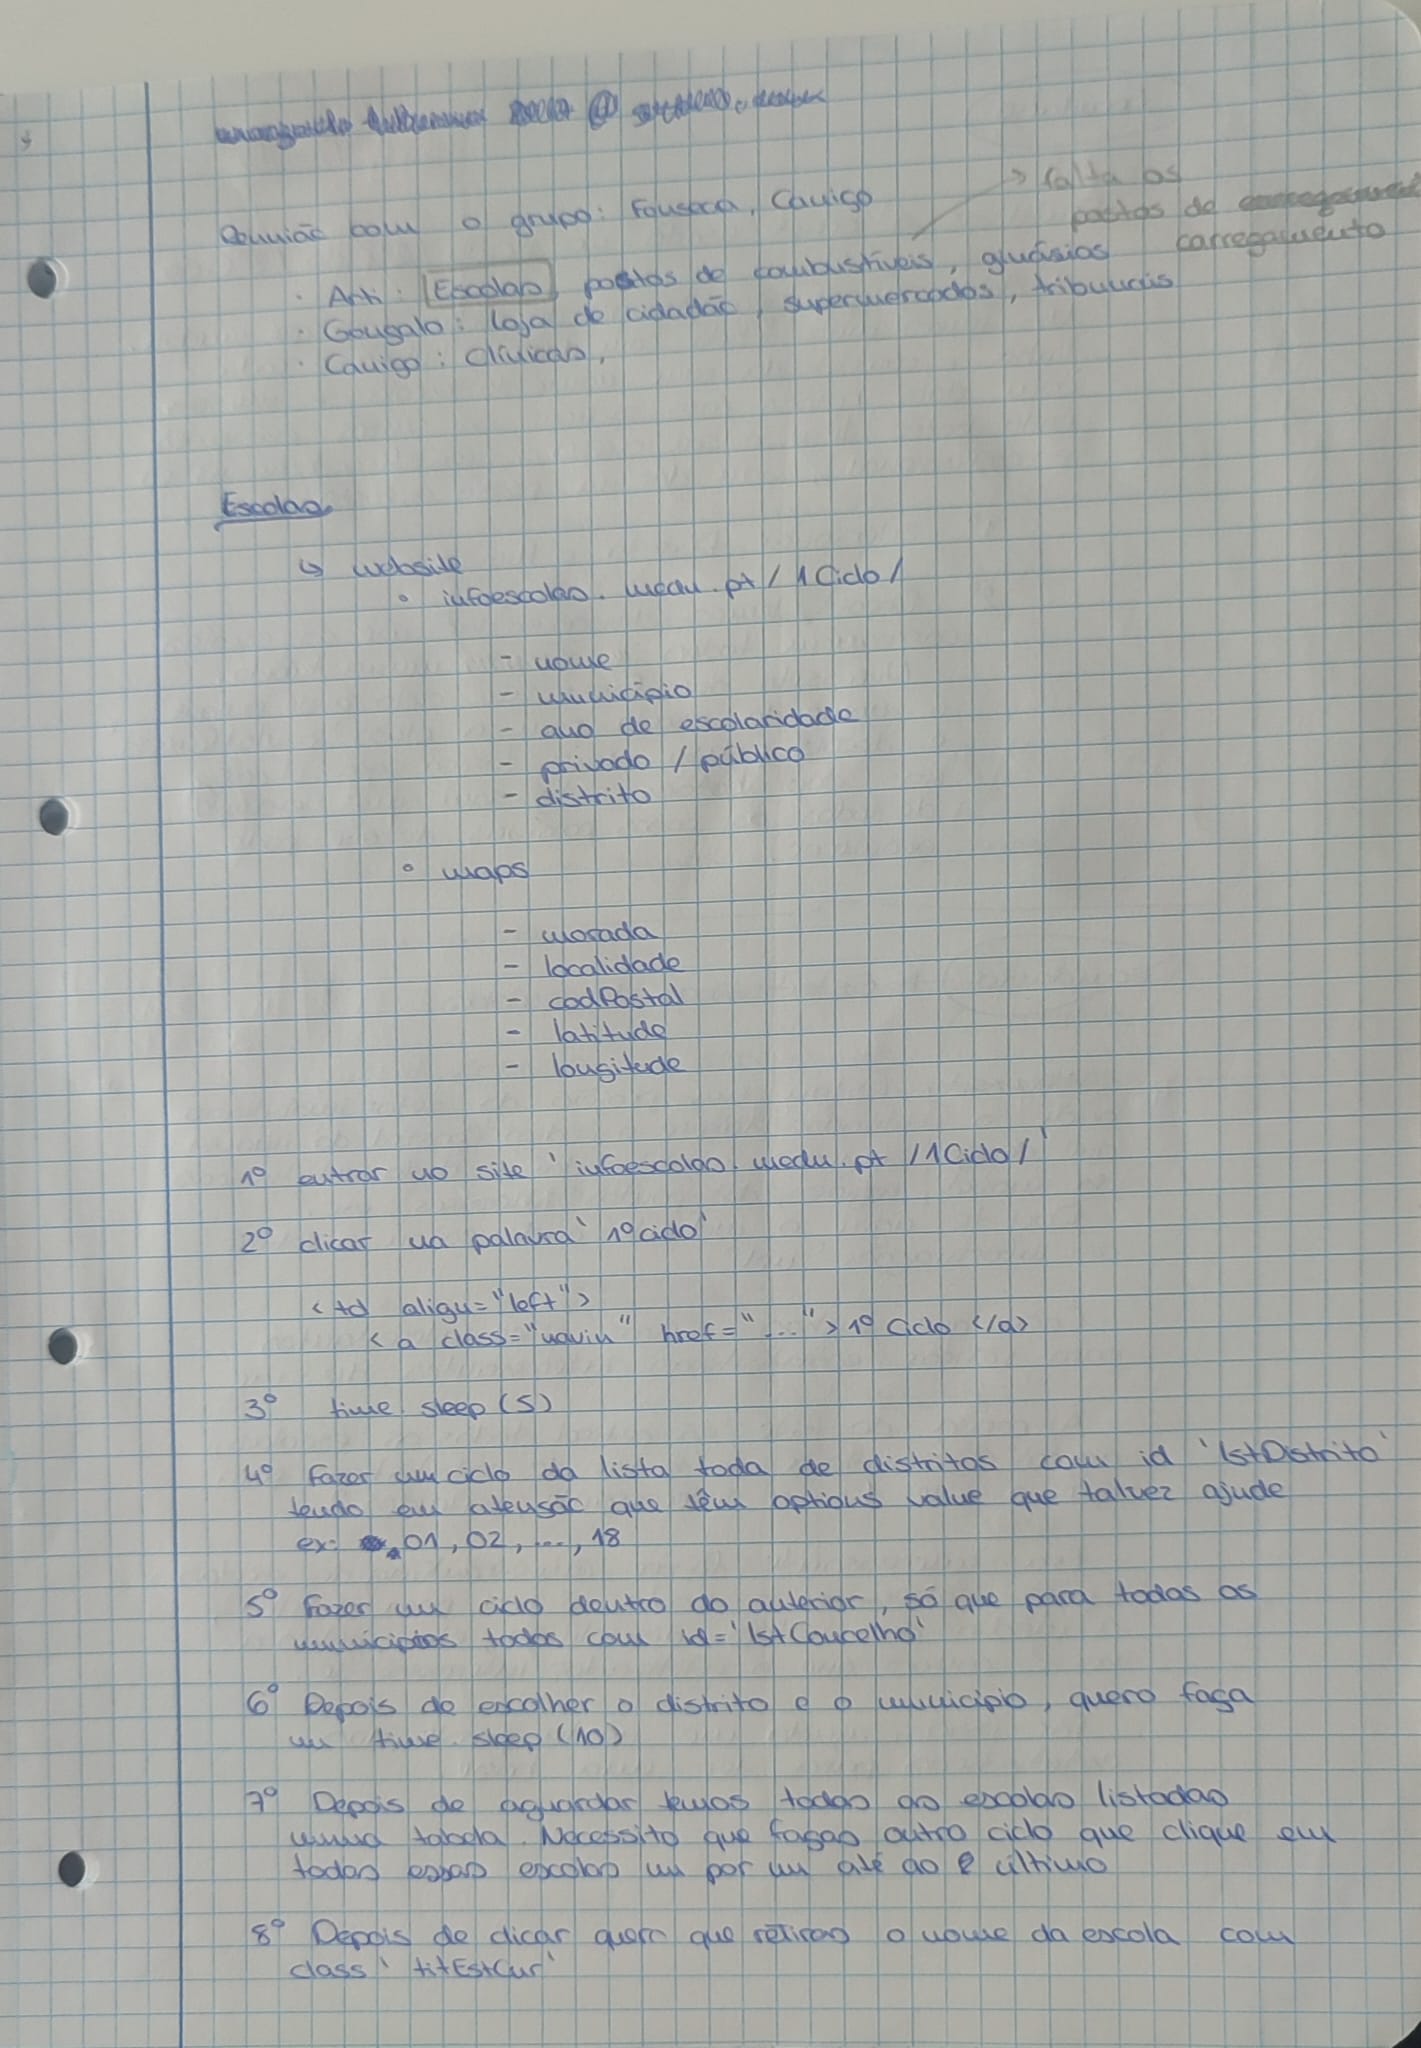 Reunião com o grupo: Fonseca, Canigo
→ falta os
postos de
carregamento
· Arti: Escolas, postos de combustíveis, ginásios
· Gonçalo: loja de cidadão, supermercados, tribunais
· Canigo: Clínicas,
Escolas
↳ website
° infoescolas.medu.pt/1Ciclo/
- nome
- município
- ano de escolaridade
- privado / público
- distrito
° maps
- morada
- localidade
- codPostal
- latitude
- longitude
1º entrar no site 'infoescolas.medu.pt/1Ciclo/'
2º clicar na palavra '1º ciclo'
<td align="left">
<a class="navin" href="...">1º Ciclo </a>
3º time.sleep(5)
4º Fazer um ciclo da lista toda de distritos com id 'lstDistrito'
tendo em atensão que têm options value que talvez ajude
ex: 01, 02, ..., 18
5º Fazer um ciclo dentro do anterior, só que para todos os
municípios todos com id='lstConcelho'
6º Depois de escolher o distrito e o município, quero faça
um time.sleep(10)
7º Depois de aguardar temos todas as escolas listadas
numa tabela. Necessito que faças outro ciclo que clique em
todas essas escolas um por um até ao último
8º Depois de clicar quero que retires o nome da escola com
class 'titEstCur'